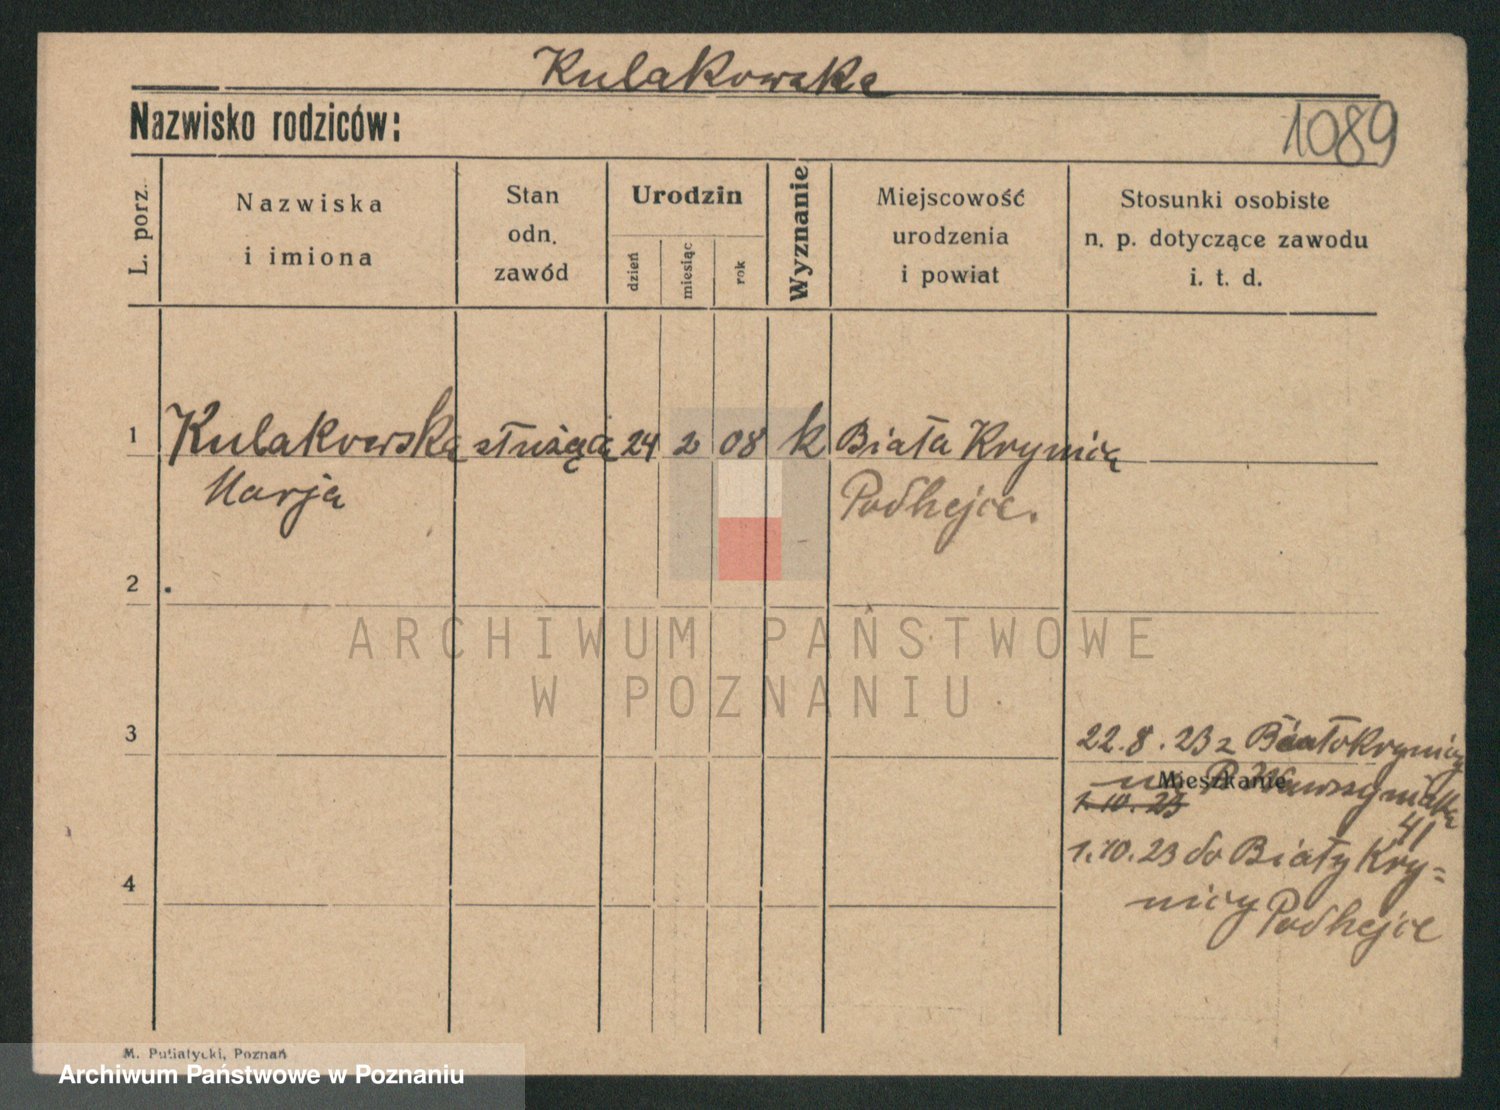 Kulakowska
Nazwisko rodziców:
1089
L. porz.
Nazwiska
i imiona
Stan
odn.
zawód
Urodzin
dzień
miesiąc
rok
Wyznanie
Miejscowość
urodzenia
i powiat
Stosunki osobiste
n. p. dotyczące zawodu
i. t. d.
1 Kulakowska służącą 24 2 08 k Biała Krynica
Marja Podhejce.
2
ARCHIWUM PAŃSTWOWE
W POZNANIU
3
22.8.23 z Białokrynicy
Mieszkanie
na Wawrzyniaka
1.10.23
41
1.10.23 do Biały Kry=
4
nicy Podhejce
M. Putiatycki, Poznań
Archiwum Państwowe w Poznaniu